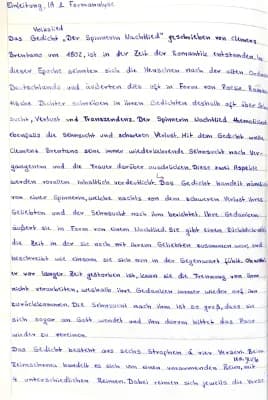 Einleitung, IA & Formanalyse
Volkslied
Das Gedicht „Der Spinnerin Nachtlied" geschrieben von Clemens
Brentano von 1802, ist in der Zeit der Romantik entstanden. In
dieser Epoche sehnten sich die Menschen nach der alten
Deutschlands und äußerten dies oft in Form von Poesie.
tische Dichter schreiben in ihren Gedichten deshalb oft über
sucht, Verlust und Transzendenz. Der Spinnerin Nachtlied thematisiert
ebenfalls die Sehnsucht und schweren Verlust. Mit dem Gedicht
Clemens Brentano seine immer wiederkehrende Sehnsucht nach Ver-
gangenem und die Trauer darüber ausdrücken. Diese zwei Aspekte
werden vorallem inhaltlich verdeutlicht. Das Gedicht handelt
von einer Spinnerin, welche nachts von dem schweren Verlust ihres
Geliebten und der Sehnsucht nach ihm berichtet. Ihre Gedanken
äußert sie in Form von einem Nachtlied. Sie gibt einen Rückblick
die Zeit in der sie noch mit ihrem Geliebten zusammen war, und
beschreibt wie einsam sie sich nun in der Gegenwart fühlt. Obwohl
er vor langer Zeit gestorben ist, kann sie die Trennung von ihm
nicht verarbeiten, weshalb ihre Gedanken immer wieder auf ihn
zurückkommen. Die Sehnsucht nach ihm ist so groß, dass sie
sich sogar an Gott wendet und ihn darum bittet das Paar
wieder zu vereinen.
Das Gedicht besteht aus sechs Strophen á vier Versen. Beim
Reimschema handelt es sich um einen umarmenden Reim, mit
4 unterschiedlichen Reimen. Dabei reimen sich jeweils die Verse